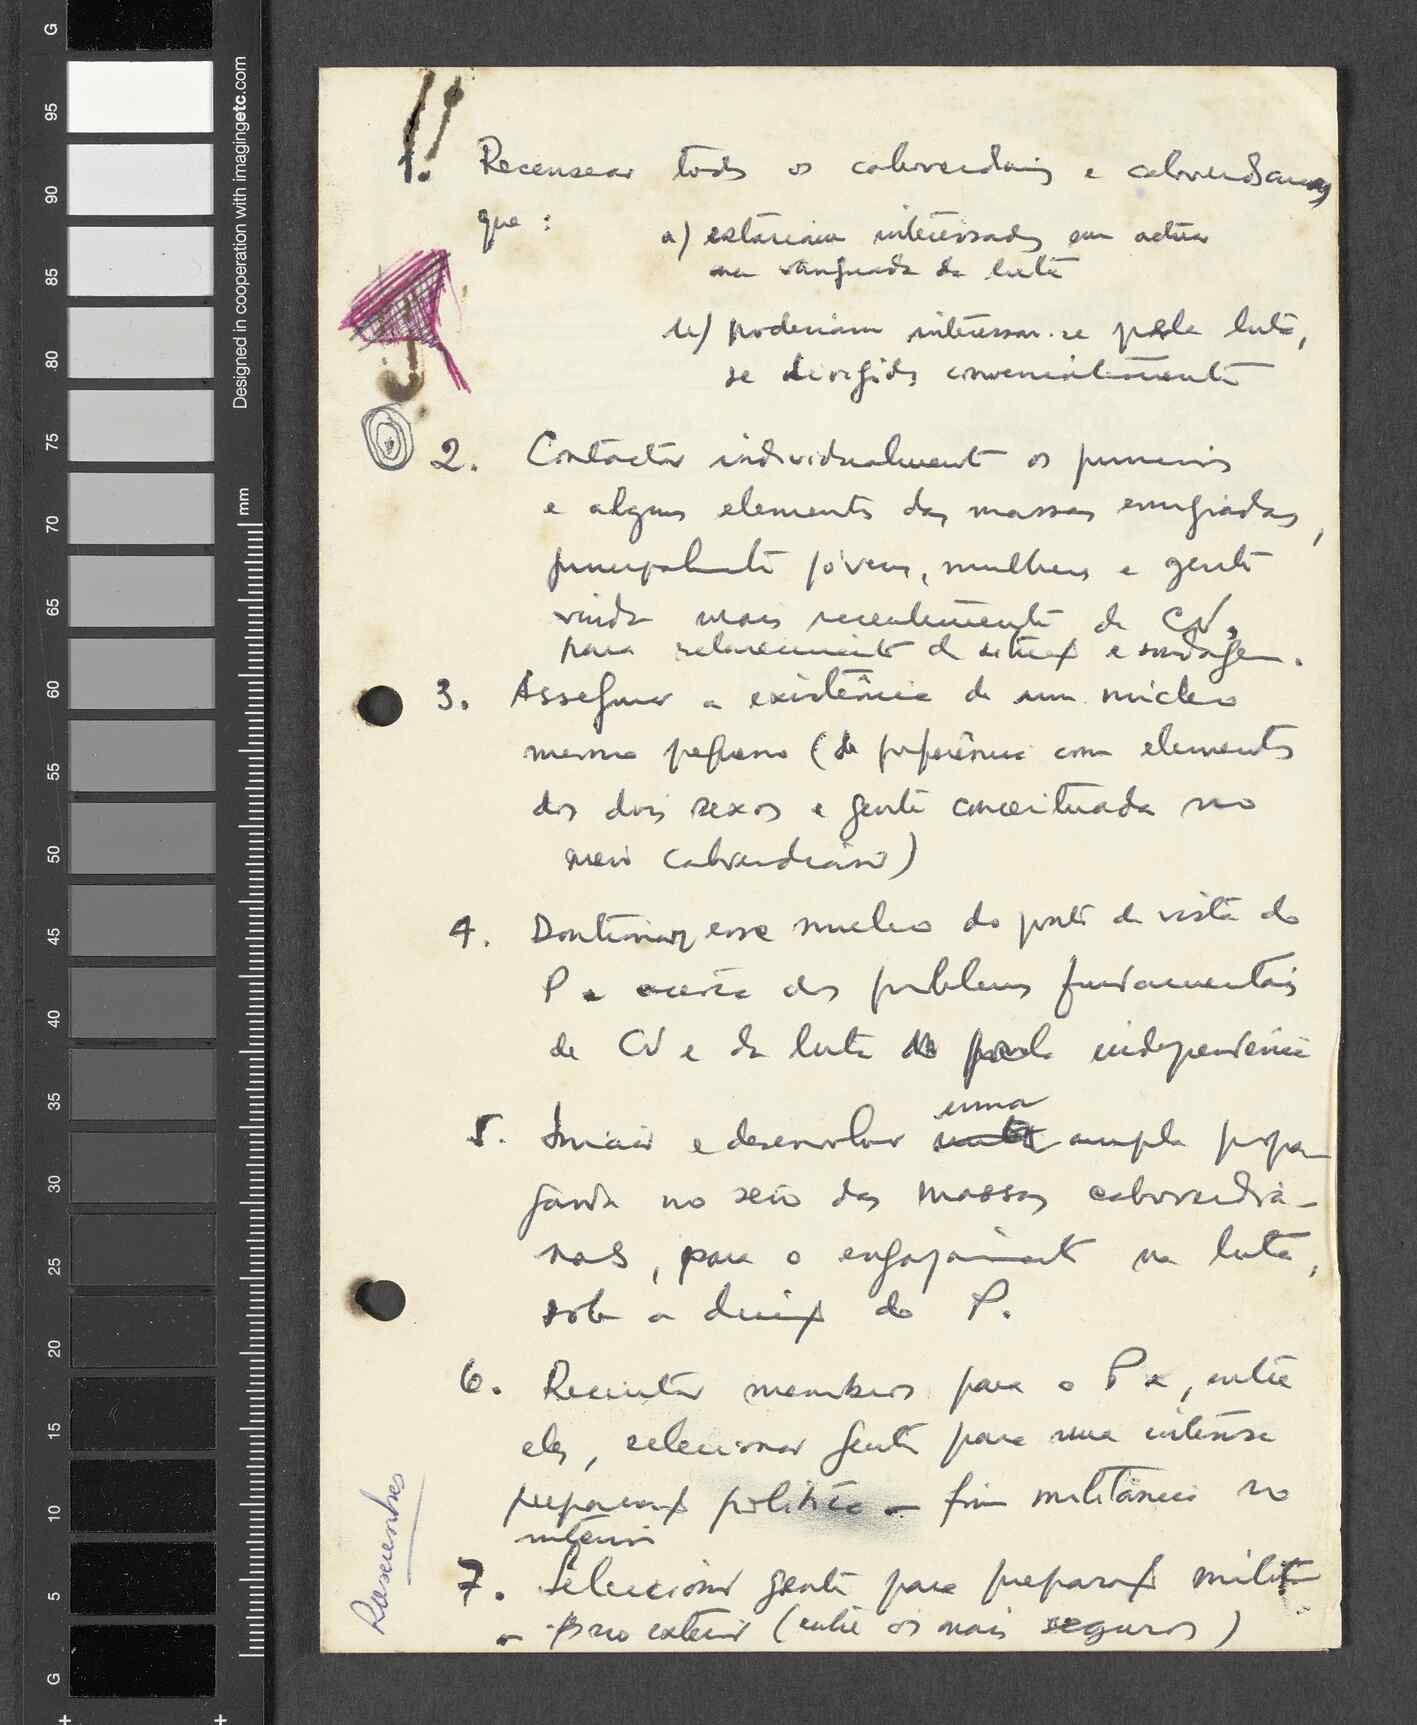 1. Recensear todos os caboverdianos e caboverdianas
que :
a) estariam interessados em actuar
na vanguarda da luta
b) poderiam interessar-se pela luta,
se dirigidos convenientemente
2. Contactar individualmente os primeiros
e alguns elementos das massas emigradas,
principalmente jóvens, mulheres e gente
vinda mais recentemente de CV,
para esclarecimento da situaç e sondagem.
3. Assegurar a existência de um núcleo
mesmo pequeno (de preferência com elementos
dos dois sexos e gente conceituada no
meio caboverdiano)
4. Doutrinar esse nucleo do ponto de vista do
P. acerca dos problemas fundamentais
de CV e da luta pela independência
5. Iniciar e desenvolver uma ampla propa-
ganda no seio das massas caboverdia-
nas, para o engajamento na luta,
sob a direcç do P.
6. Recrutar membros para o P e, entre
eles, selecionar gente para uma intensa
preparaç política – fim militância no
interior
7. Seleccionar gente para preparaç milit
– no exterior (entre os mais seguros)
Rascunhos
G
95
90
85
80
75
70
65
60
55
50
45
40
35
30
25
20
15
10
5
G
mm
Designed in cooperation with imagingetc.com